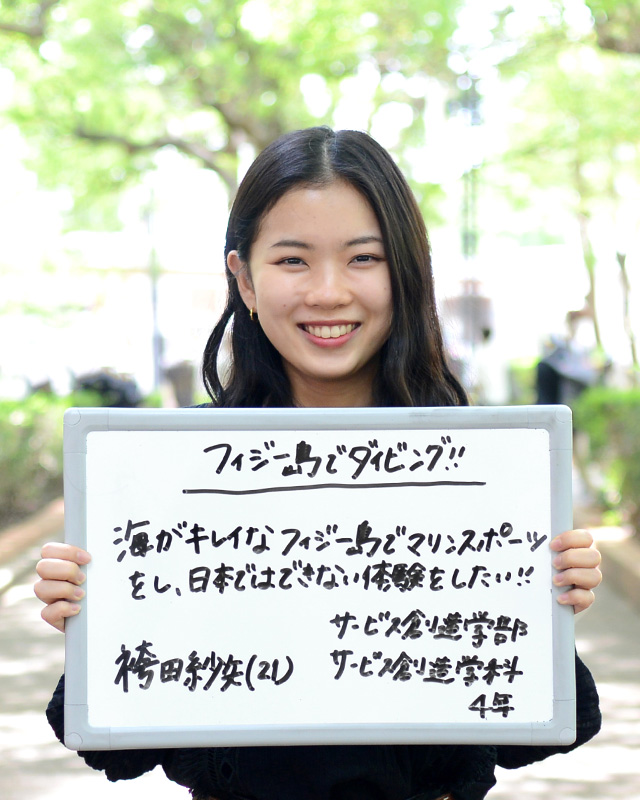 フィジー島でダイビング!!
海がキレイなフィジー島でマリンスポーツ
をし、日本ではできない体験をしたい!!
サービス創造学部
袴田紗矢(21) サービス創造学科
4年